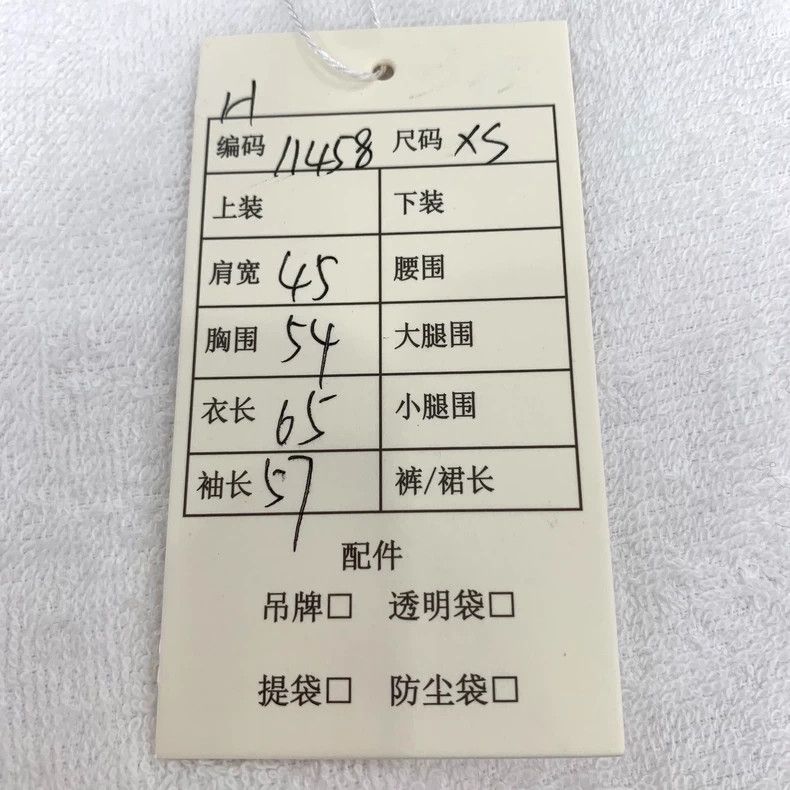 H
编码 11458 尺码 XS
上装 下装
肩宽 45 腰围
胸围 54 大腿围
衣长 65 小腿围
袖长 57 裤/裙长
配件
吊牌□ 透明袋□
提袋□ 防尘袋□